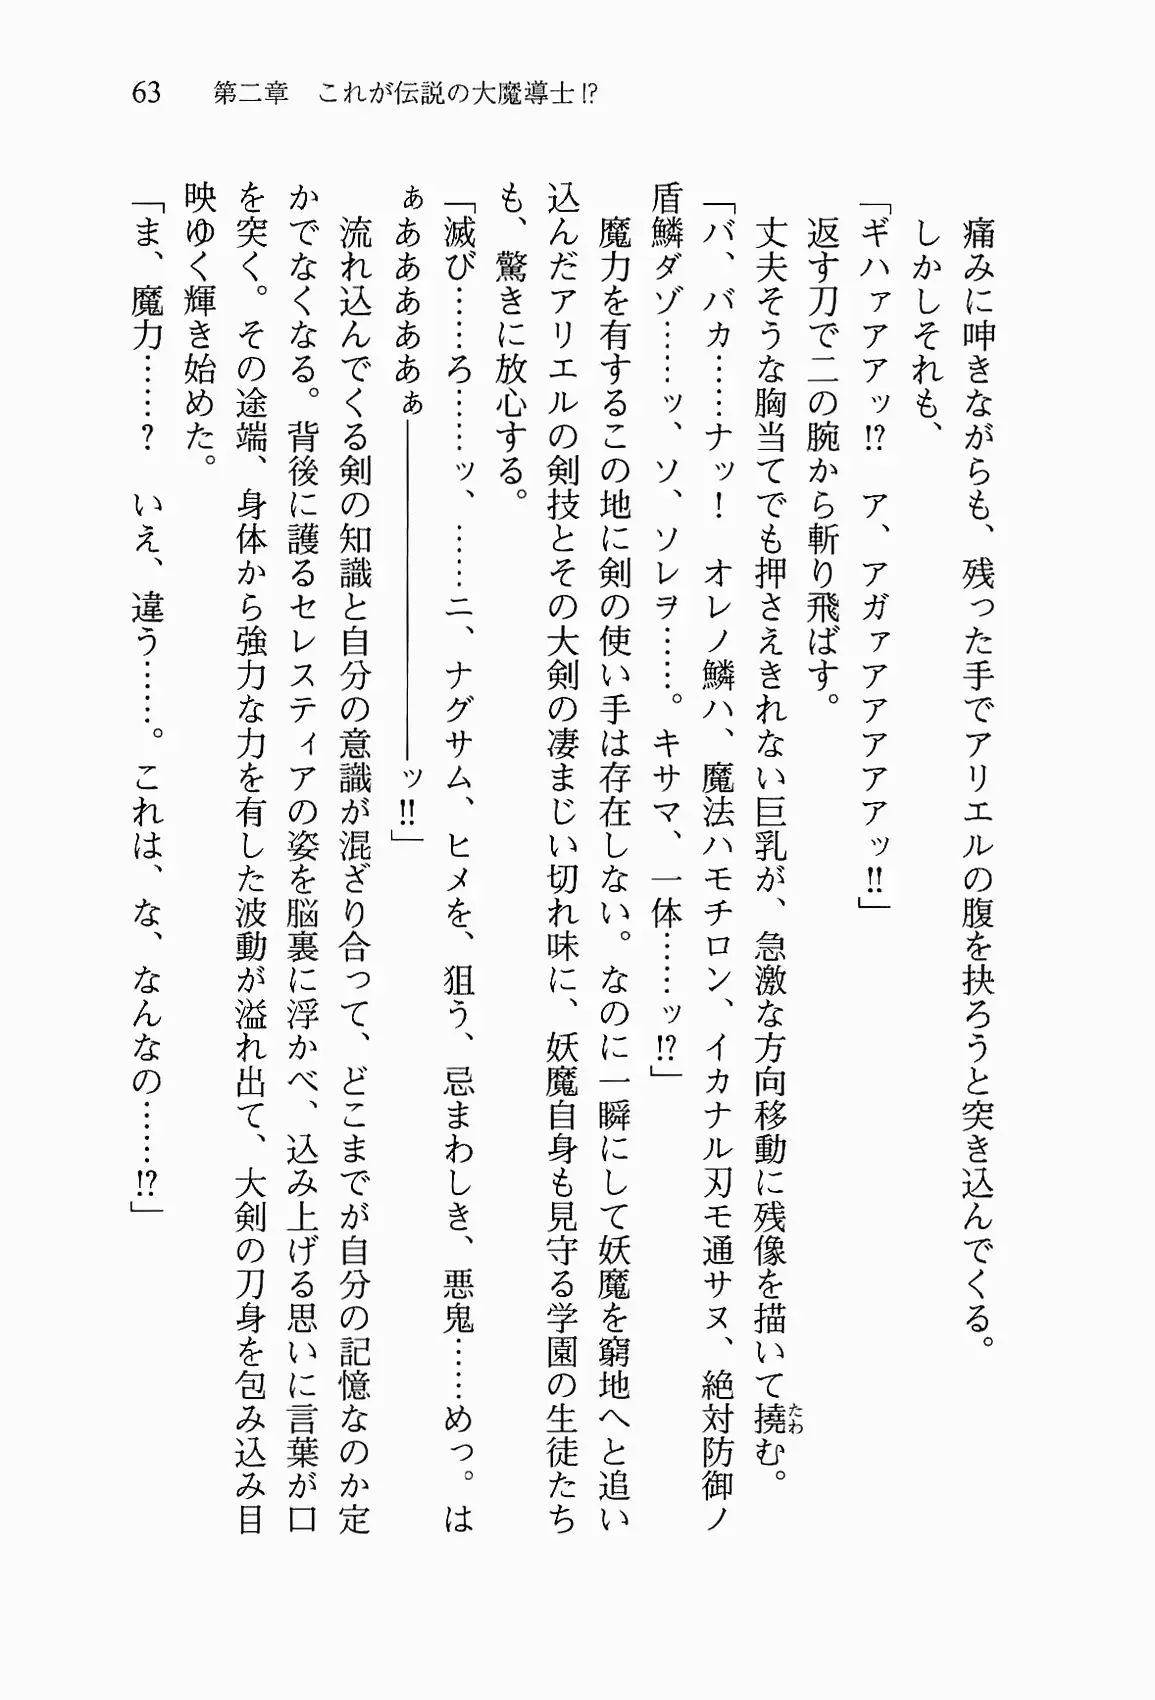 63　第二章　これが伝説の大魔導士!?
痛みに呻きながらも、残った手でアリエルの腹を抉ろうと突き込んでくる。
しかしそれも、
「ギハァアアッ!?　ア、アガァアアアアアッ!!」
返す刀で二の腕から斬り飛ばす。
丈夫そうな胸当てでも押さえきれない巨乳が、急激な方向移動に残像を描いて撓たわむ。
「バ、バカ……ナッ！　オレノ鱗ハ、魔法ハモチロン、イカナル刃モ通サヌ、絶対防御ノ
盾鱗ダゾ……ッ、ソ、ソレヲ……。キサマ、一体……ッ!?」
魔力を有するこの地に剣の使い手は存在しない。なのに一瞬にして妖魔を窮地へと追い
込んだアリエルの剣技とその大剣の凄まじい切れ味に、妖魔自身も見守る学園の生徒たち
も、驚きに放心する。
「滅び……ろ……ッ、……ニ、ナグサム、ヒメを、狙う、忌まわしき、悪鬼……めっ。は
ぁあああああぁ――――――――――ッ!!」
流れ込んでくる剣の知識と自分の意識が混ざり合って、どこまでが自分の記憶なのか定
かでなくなる。背後に護るセレスティアの姿を脳裏に浮かべ、込み上げる思いに言葉が口
を突く。その途端、身体から強力な力を有した波動が溢れ出て、大剣の刀身を包み込み目
映ゆく輝き始めた。
「ま、魔力……？　いえ、違う……。これは、な、なんなの……!?」